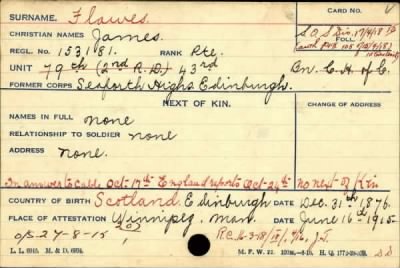 SURNAME. Flowes. CARD NO.
CHRISTIAN NAMES James. S.O.S. Dis. 17/4/18
REGL. NO. 153,181. RANK Pte. FOLL.
UNIT 79th (2nd R.D.) 43rd Bn. C.H. of C.
FORMER CORPS Seaforth Highs Edinburgh.
NEXT OF KIN. CHANGE OF ADDRESS
NAMES IN FULL None
RELATIONSHIP TO SOLDIER none
ADDRESS none.
In answer to cable Oct-17th England reports Oct-24th no next of Kin
COUNTRY OF BIRTH Scotland Edinburgh DATE Dec. 31st 1876.
PLACE OF ATTESTATION Winnipeg. Man. DATE June 16th 1915
O/S-27-8-15 202 R.C.
L. L. 6945. M. & D. 6934. M. F. W. 22. H. Q. 1772-39-839.